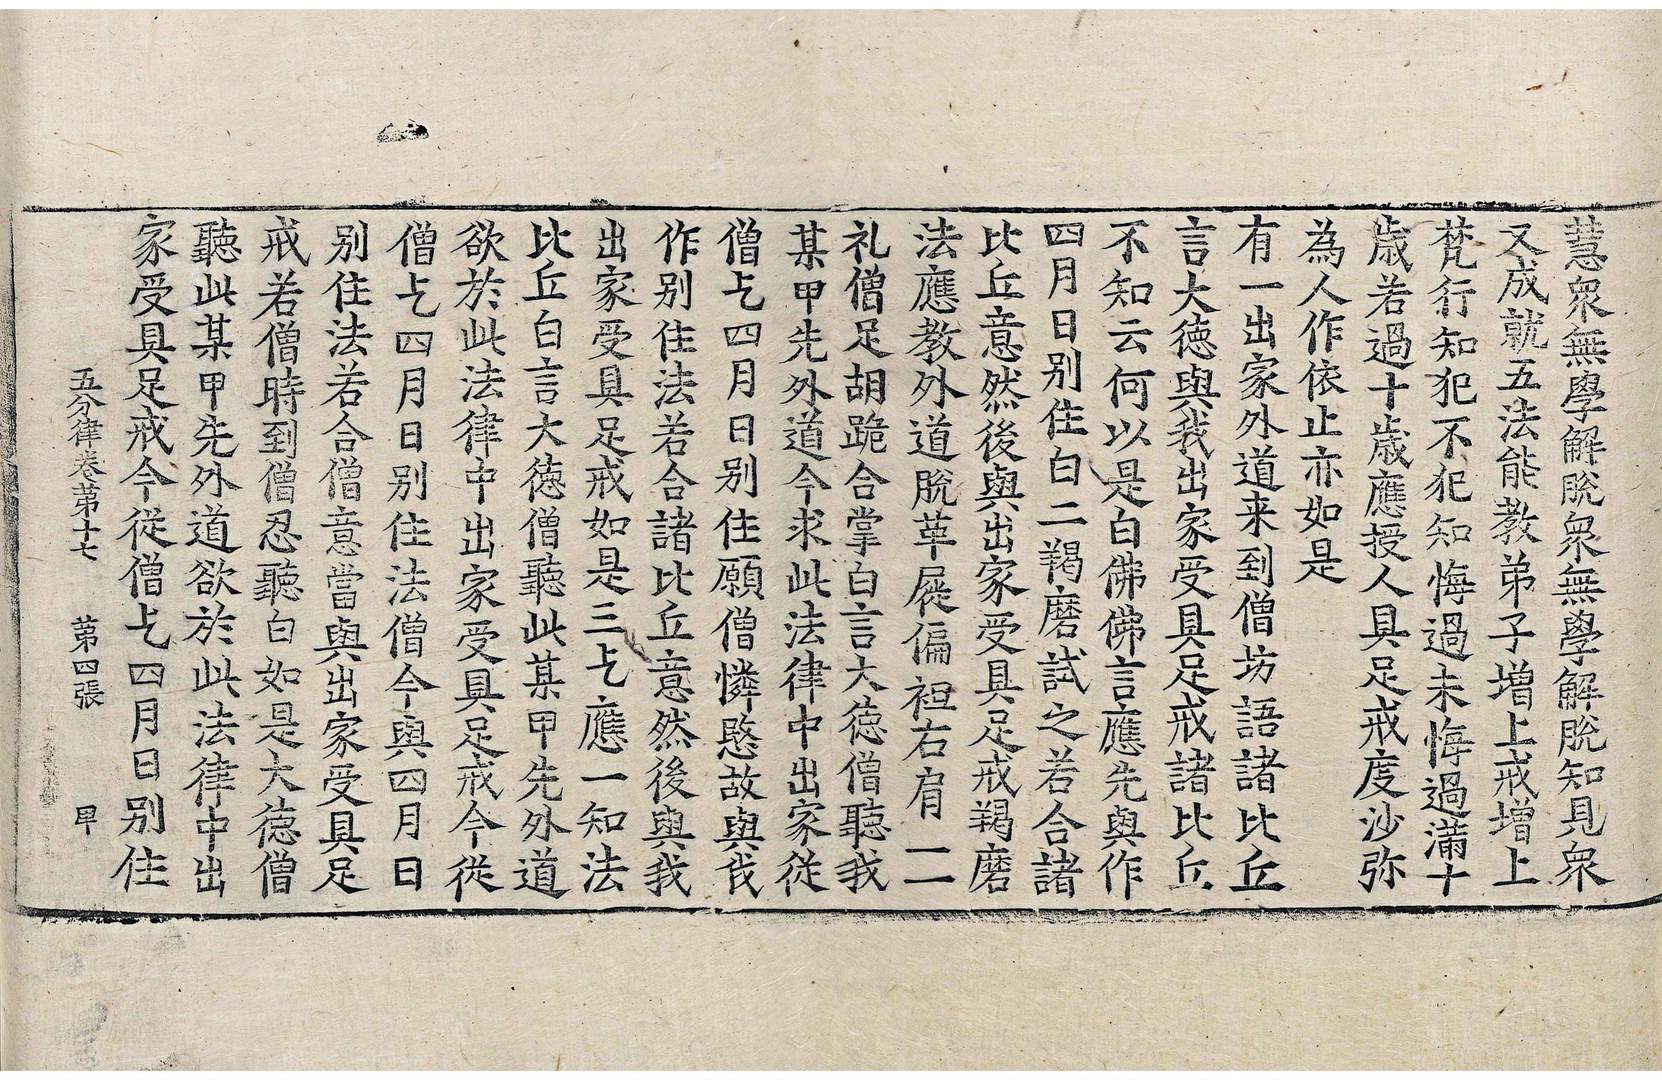 慧衆無學解脫衆無學解脫知見衆
又成就五法能教弟子增上戒增上
梵行知犯不犯知悔過未悔過滿十
歲若過十歲應授人具足戒度沙弥
為人作依止亦如是
有一出家外道来到僧坊語諸比丘
言大德與我出家受具足戒諸比丘
不知云何以是白佛佛言應先與作
四月日別住白二羯磨試之若合諸
比丘意然後與出家受具足戒羯磨
法應教外道脫革屣偏袒右肩一一
礼僧足胡跪合掌白言大德僧聽我
某甲先外道今求此法律中出家從
僧乞四月日別住願僧憐愍故與我
作別住法若合諸比丘意然後與我
出家受具足戒如是三乞應一知法
比丘白言大德僧聽此某甲先外道
欲於此法律中出家受具足戒今從
僧乞四月日別住法僧今與四月日
別住法若合僧意當與出家受具足
戒若僧時到僧忍聽白如是大德僧
聽此某甲先外道欲於此法律中出
家受具足戒今從僧乞四月日別住
五分律卷第十七 第四張 甲